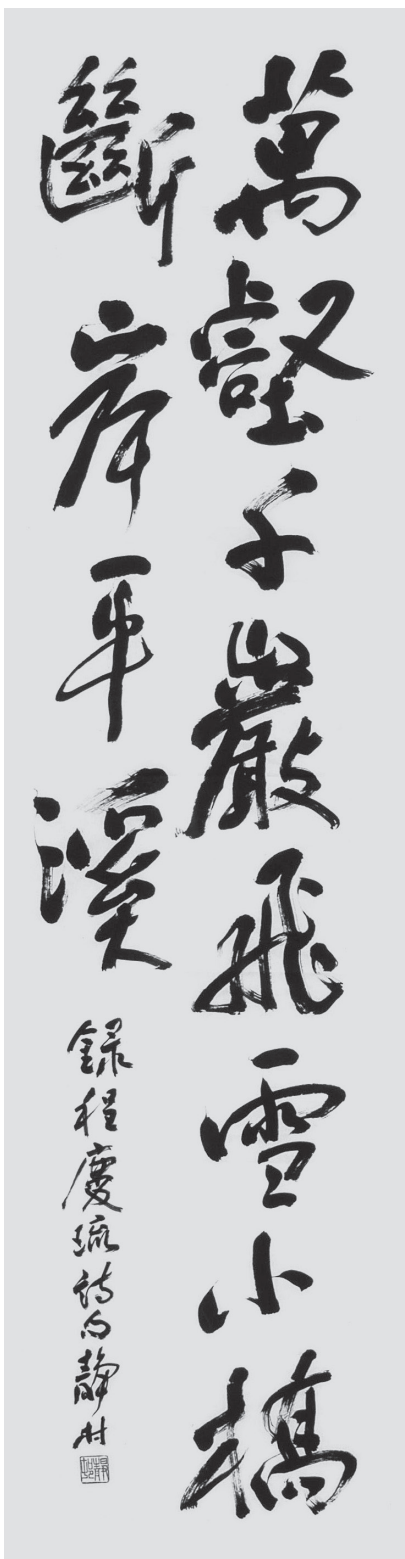 萬壑千巖飛雪小橋
斷岸平溪
錄程慶琉詩句靜村